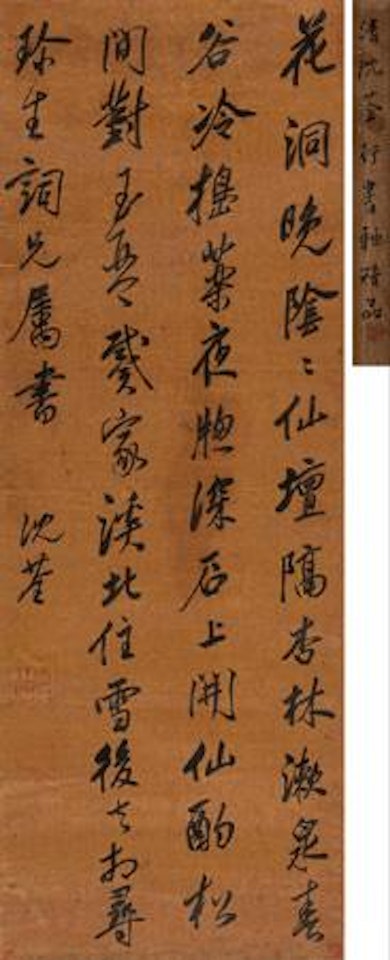 花洞晚陰〻仙壇隔杏林漱泉春
谷冷搗藥夜牕深石上開仙酌松
間對玉琴戴家溪北住雪後去相尋
珎生詞兄屬書 沈荃
清沈荃行書軸精品